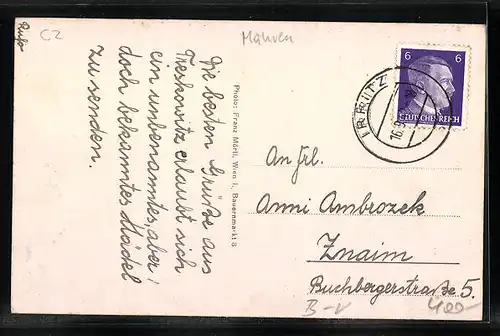 Rufs
CZ
Mähren
Die besten Grüße aus
Treskowitz erlaubt sich
ein unbenanntes, aber
doch bekanntes Mädel
zu senden.
Photo: Franz Mörtl, Wien I., Bauernmarkt 8
6 6
DEUTSCHES REICH
An Frl.
Anni Ambrozek
Znaim
Buchbergerstraße 5.
B-
400